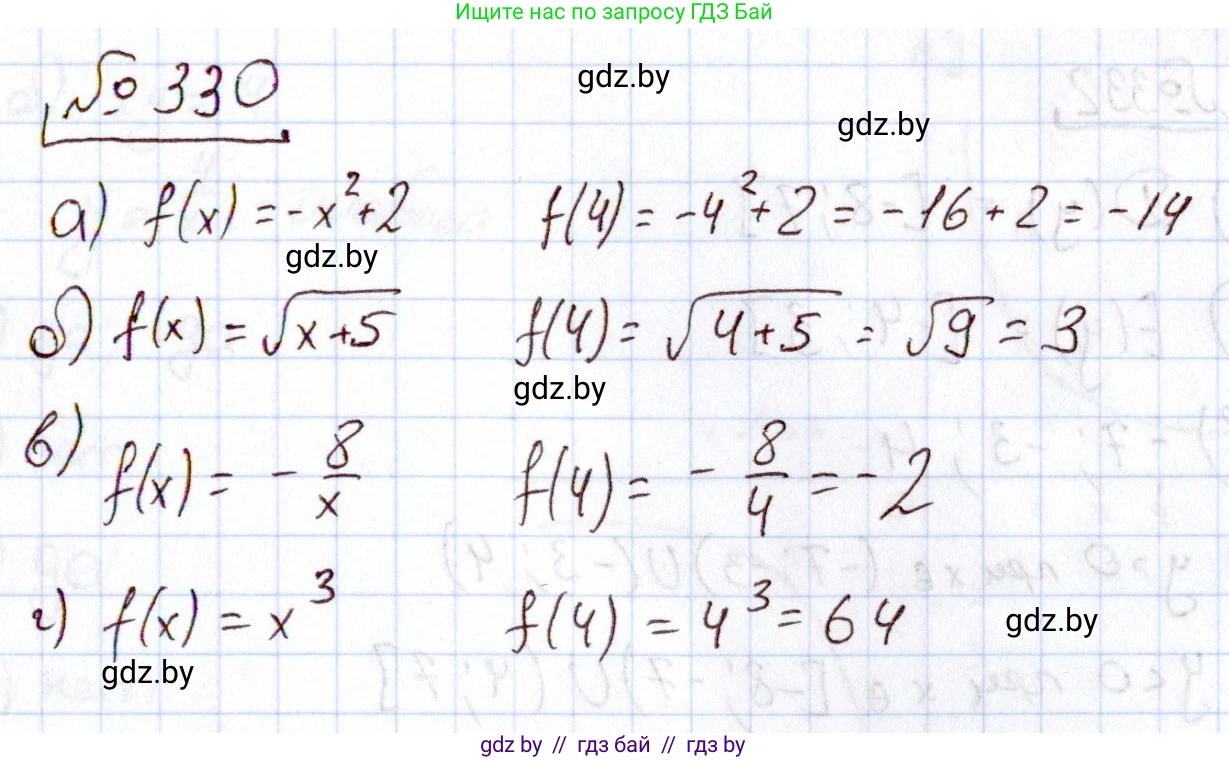 Ищите нас по запросу ГДЗ Бай
№ 330
gdz.by
gdz.by
а) f(x) = -x²+2 f(4) = -4²+2 = -16+2 = -14
gdz.by
б) f(x) = √(x+5) f(4) = √(4+5) = √9 = 3
gdz.by
в) f(x) = - 8/x f(4) = - 8/4 = -2
г) f(x) = x³ f(4) = 4³ = 64
gdz.by
gdz.by
gdz by // гдз бай // гдз by